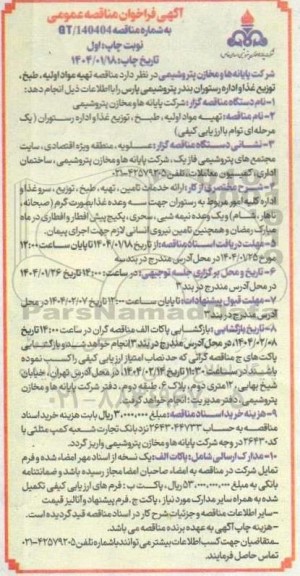 آگهی فراخوان مناقصه عمومی
به شماره مناقصه GT/140404
نوبت چاپ: اول
تاریخ چاپ: ۱۴۰۴/۰۱/۱۸
شرکت پایانه ها و مخازن پتروشیمی در نظر دارد مناقصه تهیه مواد اولیه، طبخ،
توزیع غذا و اداره رستوران بندر پتروشیمی پارس را با اطلاعات ذیل انجام دهد:
۱- نام دستگاه مناقصه گزار: شرکت پایانه ها و مخازن پتروشیمی
۲- نام مناقصه: تهیه مواد اولیه، طبخ، توزیع غذا و اداره رستوران (یک
مرحله ای توام با ارزیابی کیفی)
۳- نشانی دستگاه مناقصه گزار: عسلویه، منطقه ویژه اقتصادی، سایت
مجتمع های پتروشیمی فاز یک، شرکت پایانه ها و مخازن پتروشیمی، ساختمان
اداری، کمیسیون معاملات، تلفن: ۴۲۵۷۹۲۰۵-۰۲۱
۴- شرح مختصری از کار: ارائه خدمات تامین، تهیه، طبخ، توزیع، سرو غذا و
اداره کلیه امور مربوط به رستوران جهت سه وعده غذا بصورت گرم (صبحانه،
ناهار، شام) و یک وعده نیمه شبی، سحری، پکیج پیش افطار و افطاری در ماه
مبارک رمضان و همچنین تامین نیروی انسانی لازم جهت اجرای پیمان.
۵- مهلت دریافت اسناد مناقصه: از تاریخ ۱۴۰۴/۰۱/۱۸ تا پایان ساعت ۱۲:۰۰
مورخ ۱۴۰۴/۰۱/۲۵ در محل آدرس مندرج در بند سه
۶- تاریخ و محل برگزاری جلسه توجیهی: در ساعت ۱۴:۰۰ تاریخ ۱۴۰۴/۰۱/۲۶
در محل آدرس مندرج در بند ۳
۷- مهلت قبول پیشنهادات: تا پایان ساعت ۱۲:۰۰ تاریخ ۱۴۰۴/۰۲/۰۷ در محل
آدرس مندرج در بند ۳
۸- تاریخ بازگشایی: بازگشایی پاکات الف مناقصه گران در ساعت ۱۴:۰۰ تاریخ
۱۴۰۴/۰۲/۰۸ در محل آدرس مندرج در بند ۳ انجام خواهد شد و بازگشایی
پاکت های ج مناقصه گرانی که حد نصاب امتیاز ارزیابی کیفی را کسب نموده
باشند، در ساعت ۱۱:۳۰ تاریخ ۱۴۰۴/۰۲/۱۴ در محل آدرس تهران، خیابان
شیخ بهایی، ۱۲ متری دوم، پلاک ۶، طبقه دوم، دفتر شرکت پایانه ها و مخازن
پتروشیمی، دفتر مدیریت؛ انجام خواهد گرفت
۹- هزینه خرید اسناد مناقصه: مبلغ ۳,۰۰۰,۰۰۰ ریال بابت هزینه خرید اسناد
مناقصه به حساب ۲۶۴۳۰۴۴۷۳۳ نزد بانک تجارت شعبه کمپ مثلثی با
کد ۲۶۴۳۰ در وجه شرکت پایانه ها و مخازن پتروشیمی واریز گردد.
۱۰- مدارک ارسالی شامل: پاکات الف: یک نسخه از اسناد مهر امضاء شده و فرم
تمایل شرکت در مناقصه به امضاء صاحبان امضا مجاز رسیده باشد و ضمانتنامه
بانکی به مبلغ ۵۳,۰۰۰,۰۰۰,۰۰۰ ریال، پاکت ب: فرم های ارزیابی کیفی تکمیل
شده به همراه سایر مدارک مورد نیاز، پاکت ج: فرم پیشنهاد و آنالیز قیمت
-سایر اطلاعات مناقصه و جزئیات شرح کار در اسناد مناقصه قید گردیده است.
- هزینه چاپ آگهی به عهده برنده مناقصه می باشد.
-متقاضیان جهت کسب اطلاعات بیشتر می توانند با شماره تلفن ۴۲۵۷۹۲۰۵-۰۲۱
تماس حاصل فرمایند.